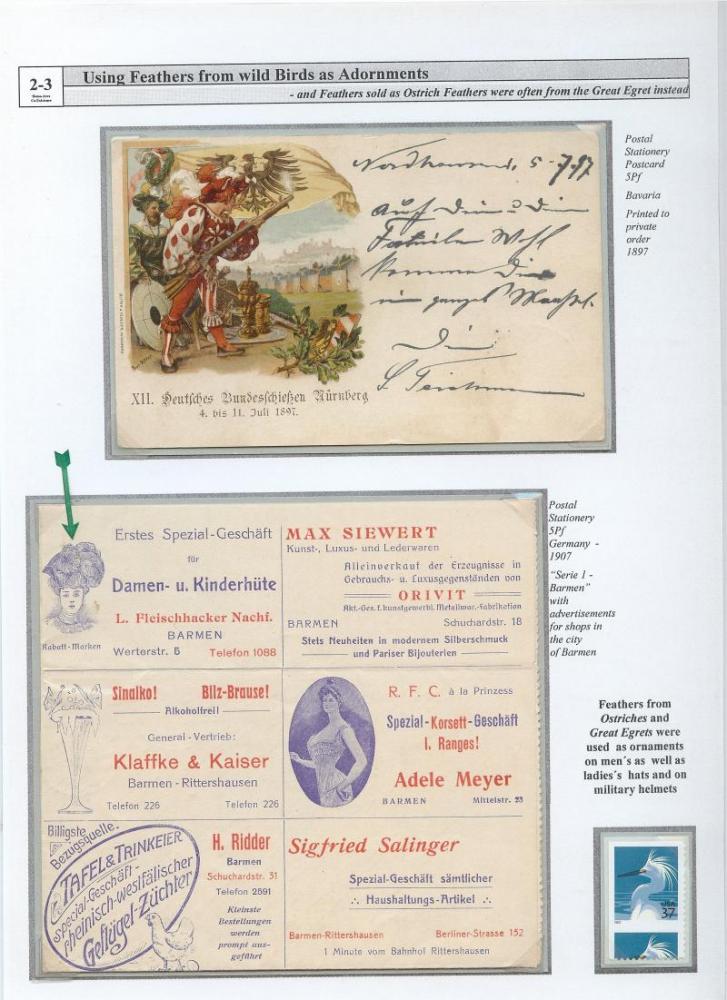 2-3
Using Feathers from wild Birds as Adornments
- and Feathers sold as Ostrich Feathers were often from the Great Egret instead
Postal
Stationery
Postcard
5Pf
Bavaria
Printed to
private
order
1897
5-7.97
Auf
XII. Deutsches Bundesschießen Nürnberg
4. bis 11. Juli 1897.
Postal
Stationery
5Pf
Germany -
1907
"Serie 1 -
Barmen"
with
advertisements
for shops in
the city
of Barmen
Erstes Spezial-Geschäft
für
Damen- u. Kinderhüte
L. Fleischhacker Nachf.
BARMEN
Rabatt-Marken
Werterstr. 5 Telefon 1088
MAX SIEWERT
Kunst-, Luxus- und Lederwaren
Alleinverkauf der Erzeugnisse in
Gebrauchs- u. Luxusgegenständen von
ORIVIT
Akt.-Ges. f. kunstgewerbl. Metallwar.-Fabrikation
BARMEN Schuchardstr. 18
Stets Neuheiten in modernem Silberschmuck
und Pariser Bijouterien
Sinalko! Bilz-Brause!
Alkoholfrei!
General-Vertrieb:
Klaffke & Kaiser
Barmen - Rittershausen
Telefon 226 Telefon 226
R. F. C. à la Prinzess
Spezial-Korsett-Geschäft
I. Ranges!
Adele Meyer
BARMEN Mittelstr. 23
Billigste
Bezugsquelle.
TAFEL & TRINKEIER
Special-Geschäft-
rheinisch-westfälischer
Geflügel-Züchter
H. Ridder
Barmen
Schuchardstr. 31
Telefon 2591
Kleinste
Bestellungen
werden
prompt aus-
geführt
Sigfried Salinger
Spezial-Geschäft sämtlicher
∴ Haushaltungs-Artikel ∴
Barmen-Rittershausen Berliner-Strasse 152
1 Minute vom Bahnhof Rittershausen
Feathers from
Ostriches and
Great Egrets were
used as ornaments
on men´s as well as
ladies´s hats and on
military helmets
USA
37